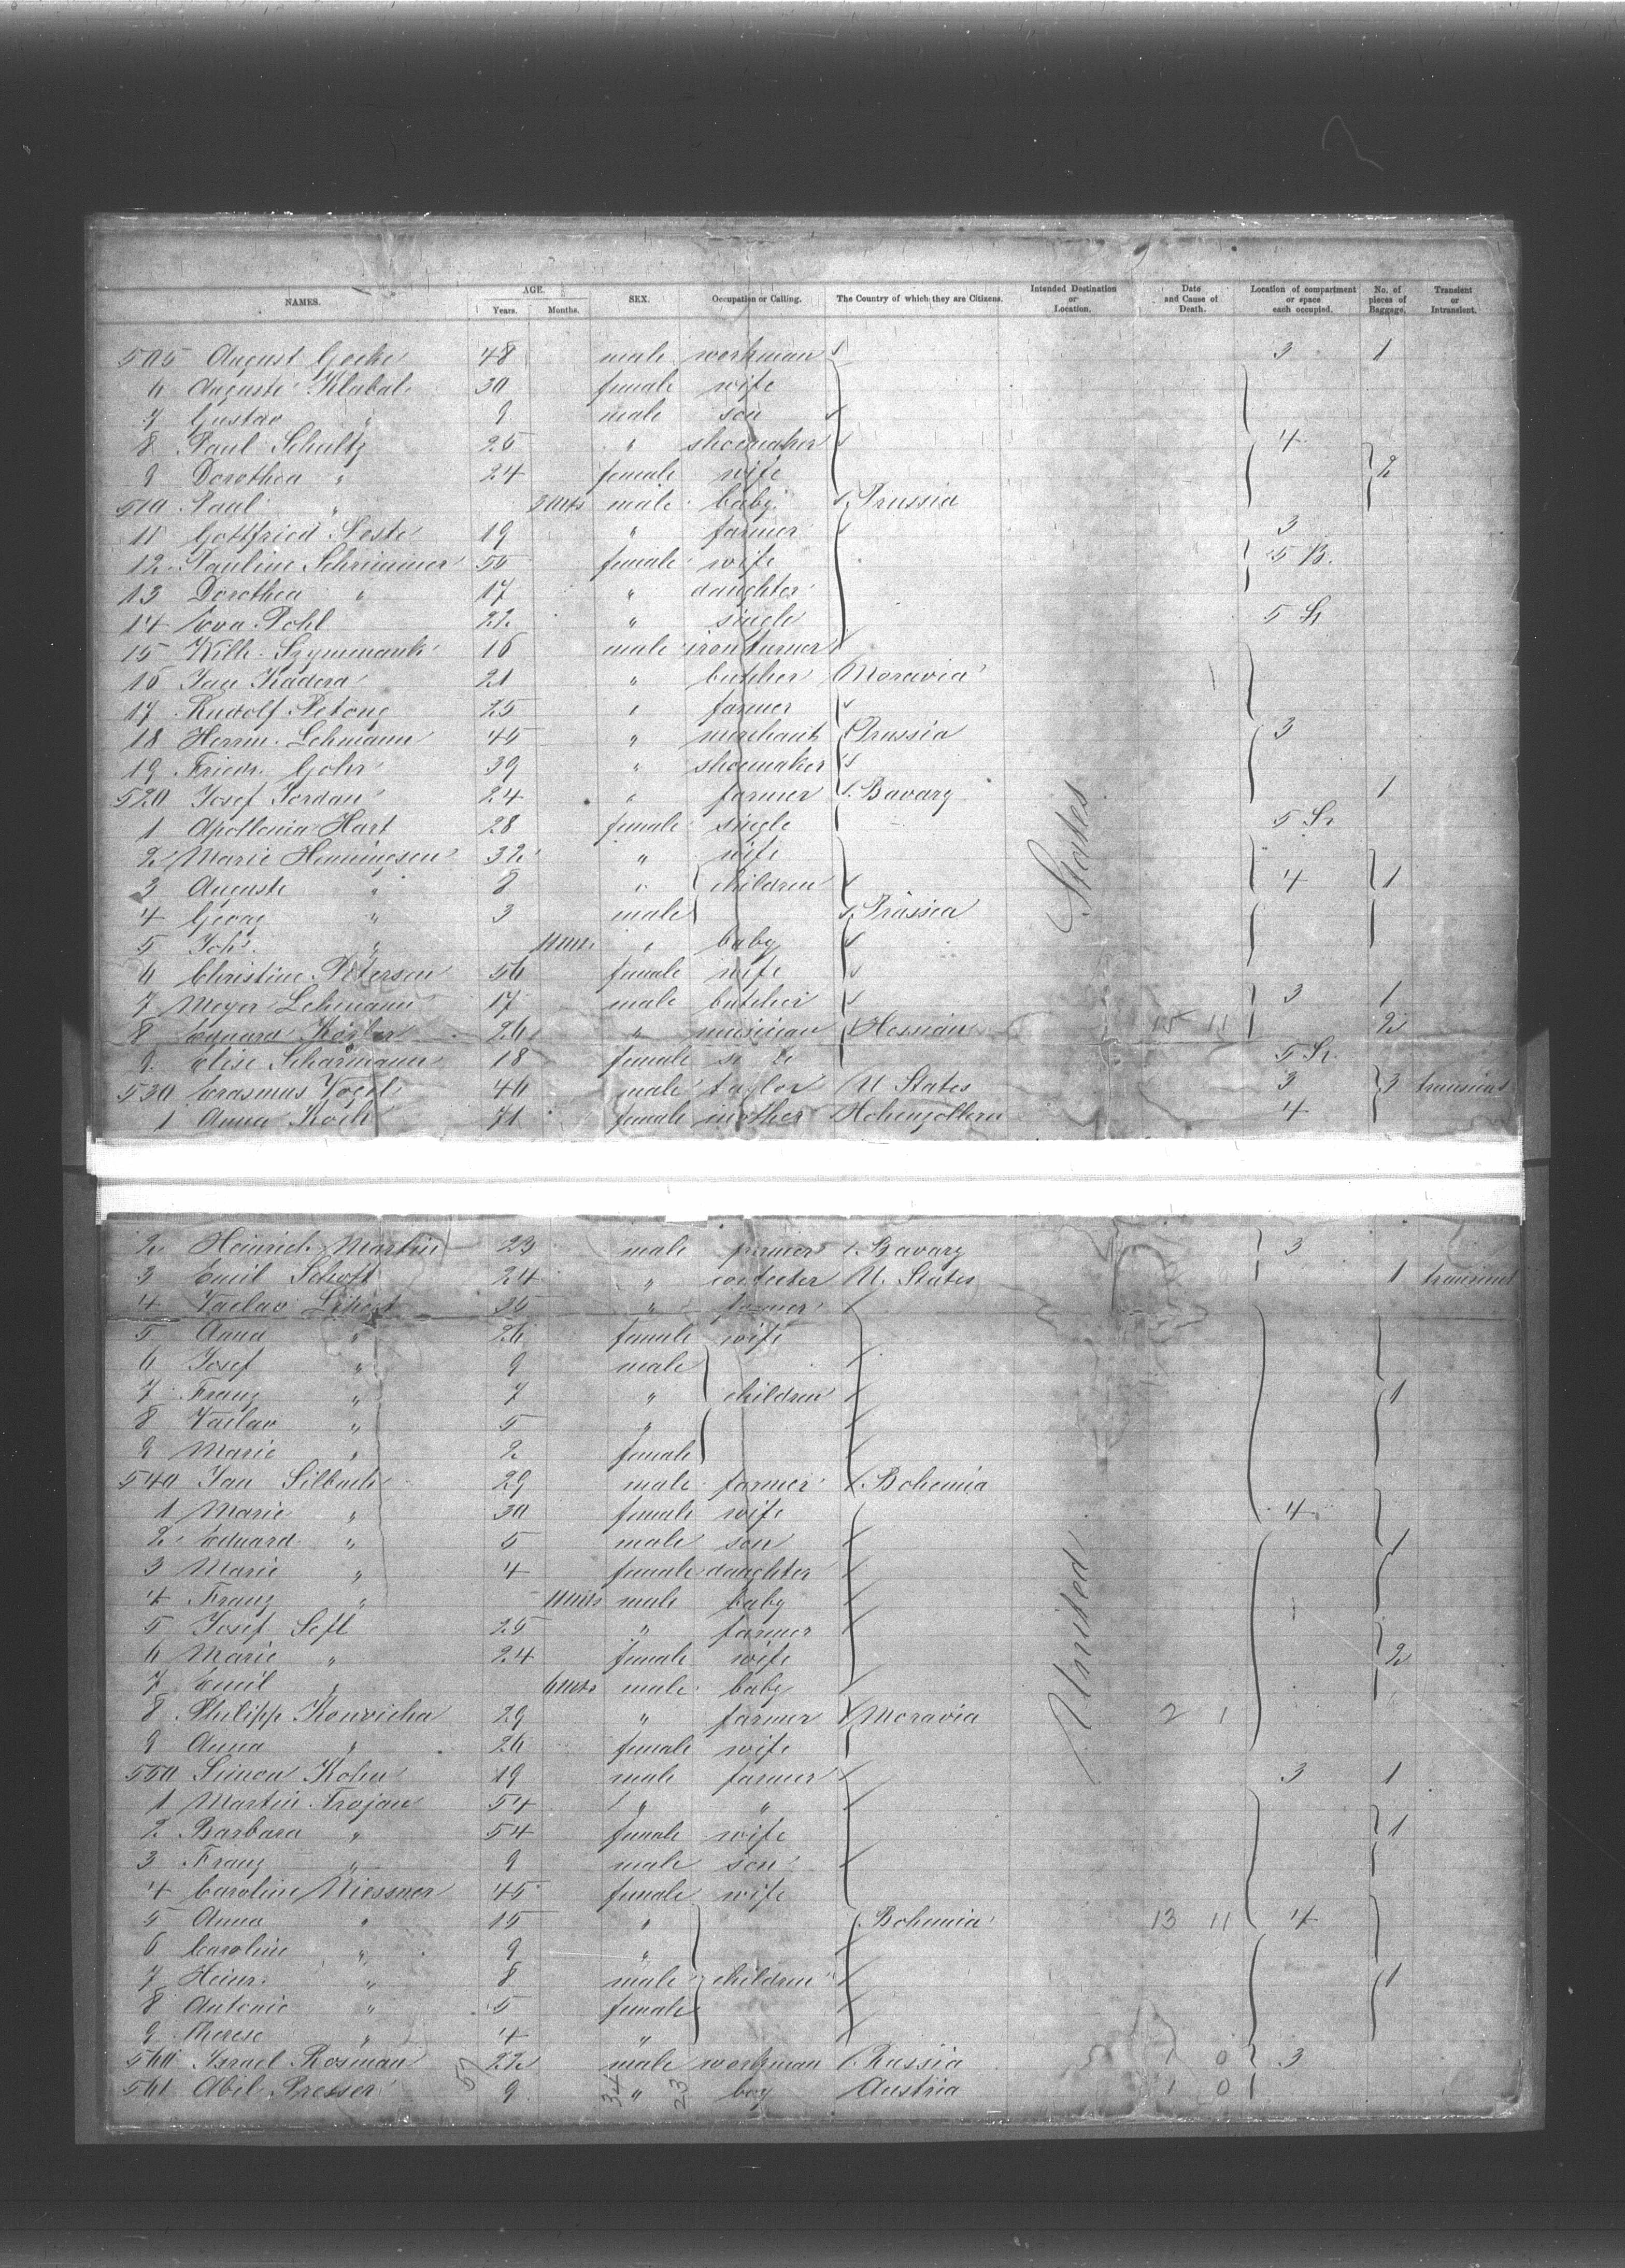 NAMES. AGE. Years. Months. SEX. Occupation or Calling. The Country of which they are Citizens. Intended Destination or Location. Date and Cause of Death. Location of compartment or space each occupied. No. of pieces of Baggage. Transient or Intransient.
505 August Goeke 48 male workman 3 1
6 Auguste Klabal 30 female wife
7 Gustav " 9 male son
8 Paul Schultz 25 " shoemaker 4
9 Dorothea " 24 female wife 2
510 Paul " male baby Prussia
11 Gottfried 19 " farmer 3
12 Pauline Schrimmer 55 female wife 5 B.
13 Dorothea " 17 " daughter
14 Eva Pohl 22 " single 5
15 Wilh. Szymmank 16 male iron turner
16 Jan Kadera 21 " butcher Moravia
17 Rudolf Petong 25 " farmer
18 Herm. Lehmann 45 " merchant Prussia 3
19 Friedr. Gohr 39 " shoemaker
520 Josef Jordan 24 " farmer Bavary 1
1 Apollonia Hart 28 female single 5
2 Marie Henningsen 32 " wife
3 Auguste " 8 " children 4 1
4 Georg " 3 male Prussia
5 Joh. " " baby
6 Christine Petersen 56 female wife
7 Meyer Lehmann 17 male butcher 3 1
8 Eduard 26 " musician Hessian 15 11 2
9 Elise Scharmann 18 female 5
530 Erasmus Vogel 46 male taylor U States 3 3 transient
1 Anna Koch 71 female mother Hohenzollern 4
States
2 Heinrich Martin 23 male farmer Bavary 3
3 Emil Schott 24 " U. States 1 transient
4 Vaclav 35 " farmer
5 Anna " 26 female wife
6 Josef " 9 male
7 Franz " 7 " children 1
8 Vaclav " 5 "
9 Marie " 2 female
540 Jan 29 male farmer Bohemia
1 Marie " 30 female wife 4
2 Eduard " 5 male son 1
3 Marie " 4 female daughter
4 Franz " male baby
5 Josef Seft 25 " farmer
6 Marie " 24 female wife 2
7 Emil " 6 mts male baby
8 Philipp Konvicka 29 " farmer Moravia 2 1
9 Anna " 26 female wife
550 Simon Kohn 19 male farmer 3 1
1 Martin Trojan 54 " "
2 Barbara " 54 female wife 1
3 Franz " 9 male son
4 Caroline Niessner 45 female wife
5 Anna " 15 " Bohemia 13 11 4
6 Caroline " 9 "
7 Heinr. " 8 male children 1
8 Antonie " 5 female
9 Therese " 4 "
560 Israel Rosman 22 male workman Russia 1 0 3
561 Abel Presser 9 " boy Austria 1 0
United
57 34 23